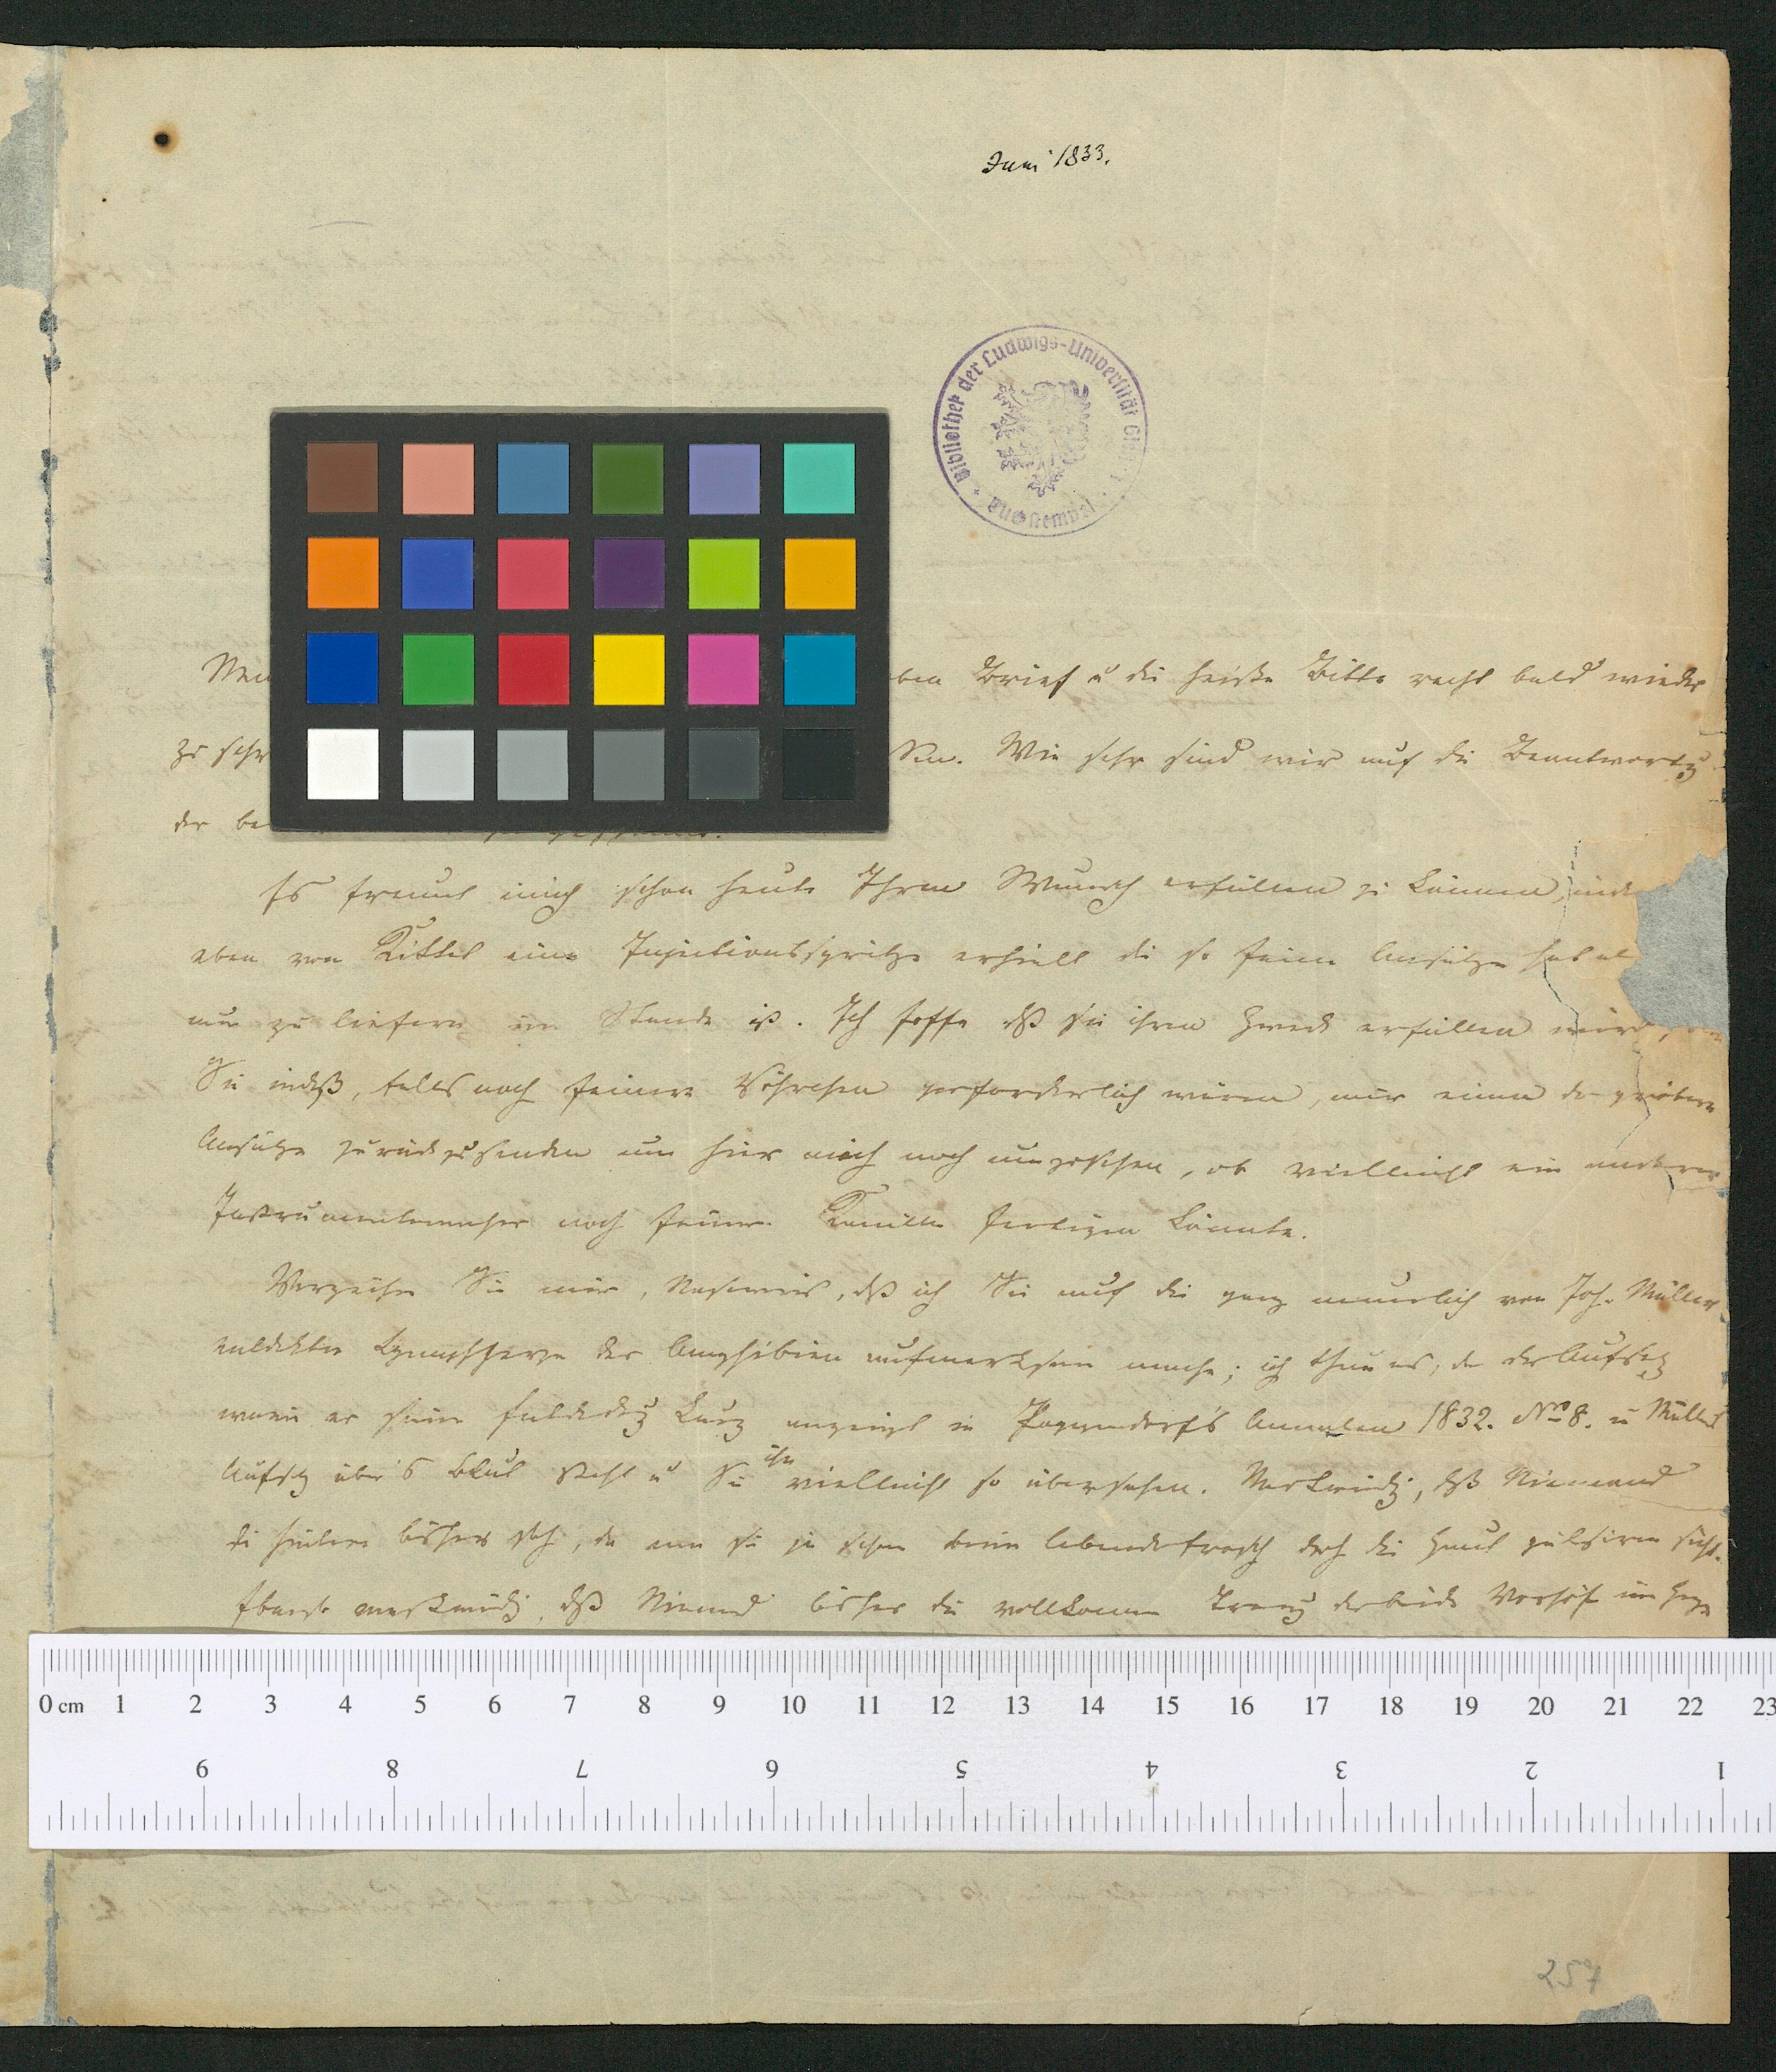 Juni 1833.
Bibliothek der Ludwigs-Universität
ben Brief u die heiße Bitte recht bald wieder
zu schr Wie sehr sind wir auf die Beantwortg
der be
Es freuet mich schon heute Ihren Wunsch erfüllen zu können, inde
eben von Kittel eine Injectionsspritze erhielt die so feine Ansätze hat al
nur zu liefern im Stande ist. Ich hoffe dß sie ihren Zweck erfüllen wird
Sie indeß, falls noch feinere Röhrchen erforderlich wären, mir einen der gröbern
Ansätze zurückzusenden um hier mich noch umzusehen, ob vielleicht ein anderer
Instrumentenmacher noch feinere fertigen könnte.
Verzeihen Sie mir, dß ich Sie auf die ganz neuerlich von Joh. Müller
entdekten Lymphherzen der Amphibien aufmerksam mache; ich thue es, da der Aufsatz
worin er seine Entdeckg kurz anzeigt in Poggendorf's Annalen 1832. Nro 8. in Müllers
Aufsatz über's Blut steht u Sie ihn vielleicht so übersehen. Merkwürdig, dß Niemand
die hintern bisher sah, da man sie ja schon beim lebenden Frosch durch die Haut pulsiren sieht.
Ebenso merkwürdig, dß Niemand bisher die vollkomne Trenng der beiden Vorhöfe im Herzen
0 cm 1 2 3 4 5 6 7 8 9 10 11 12 13 14 15 16 17 18 19 20 21 22 23
9 8 7 6 5 4 3 2 1